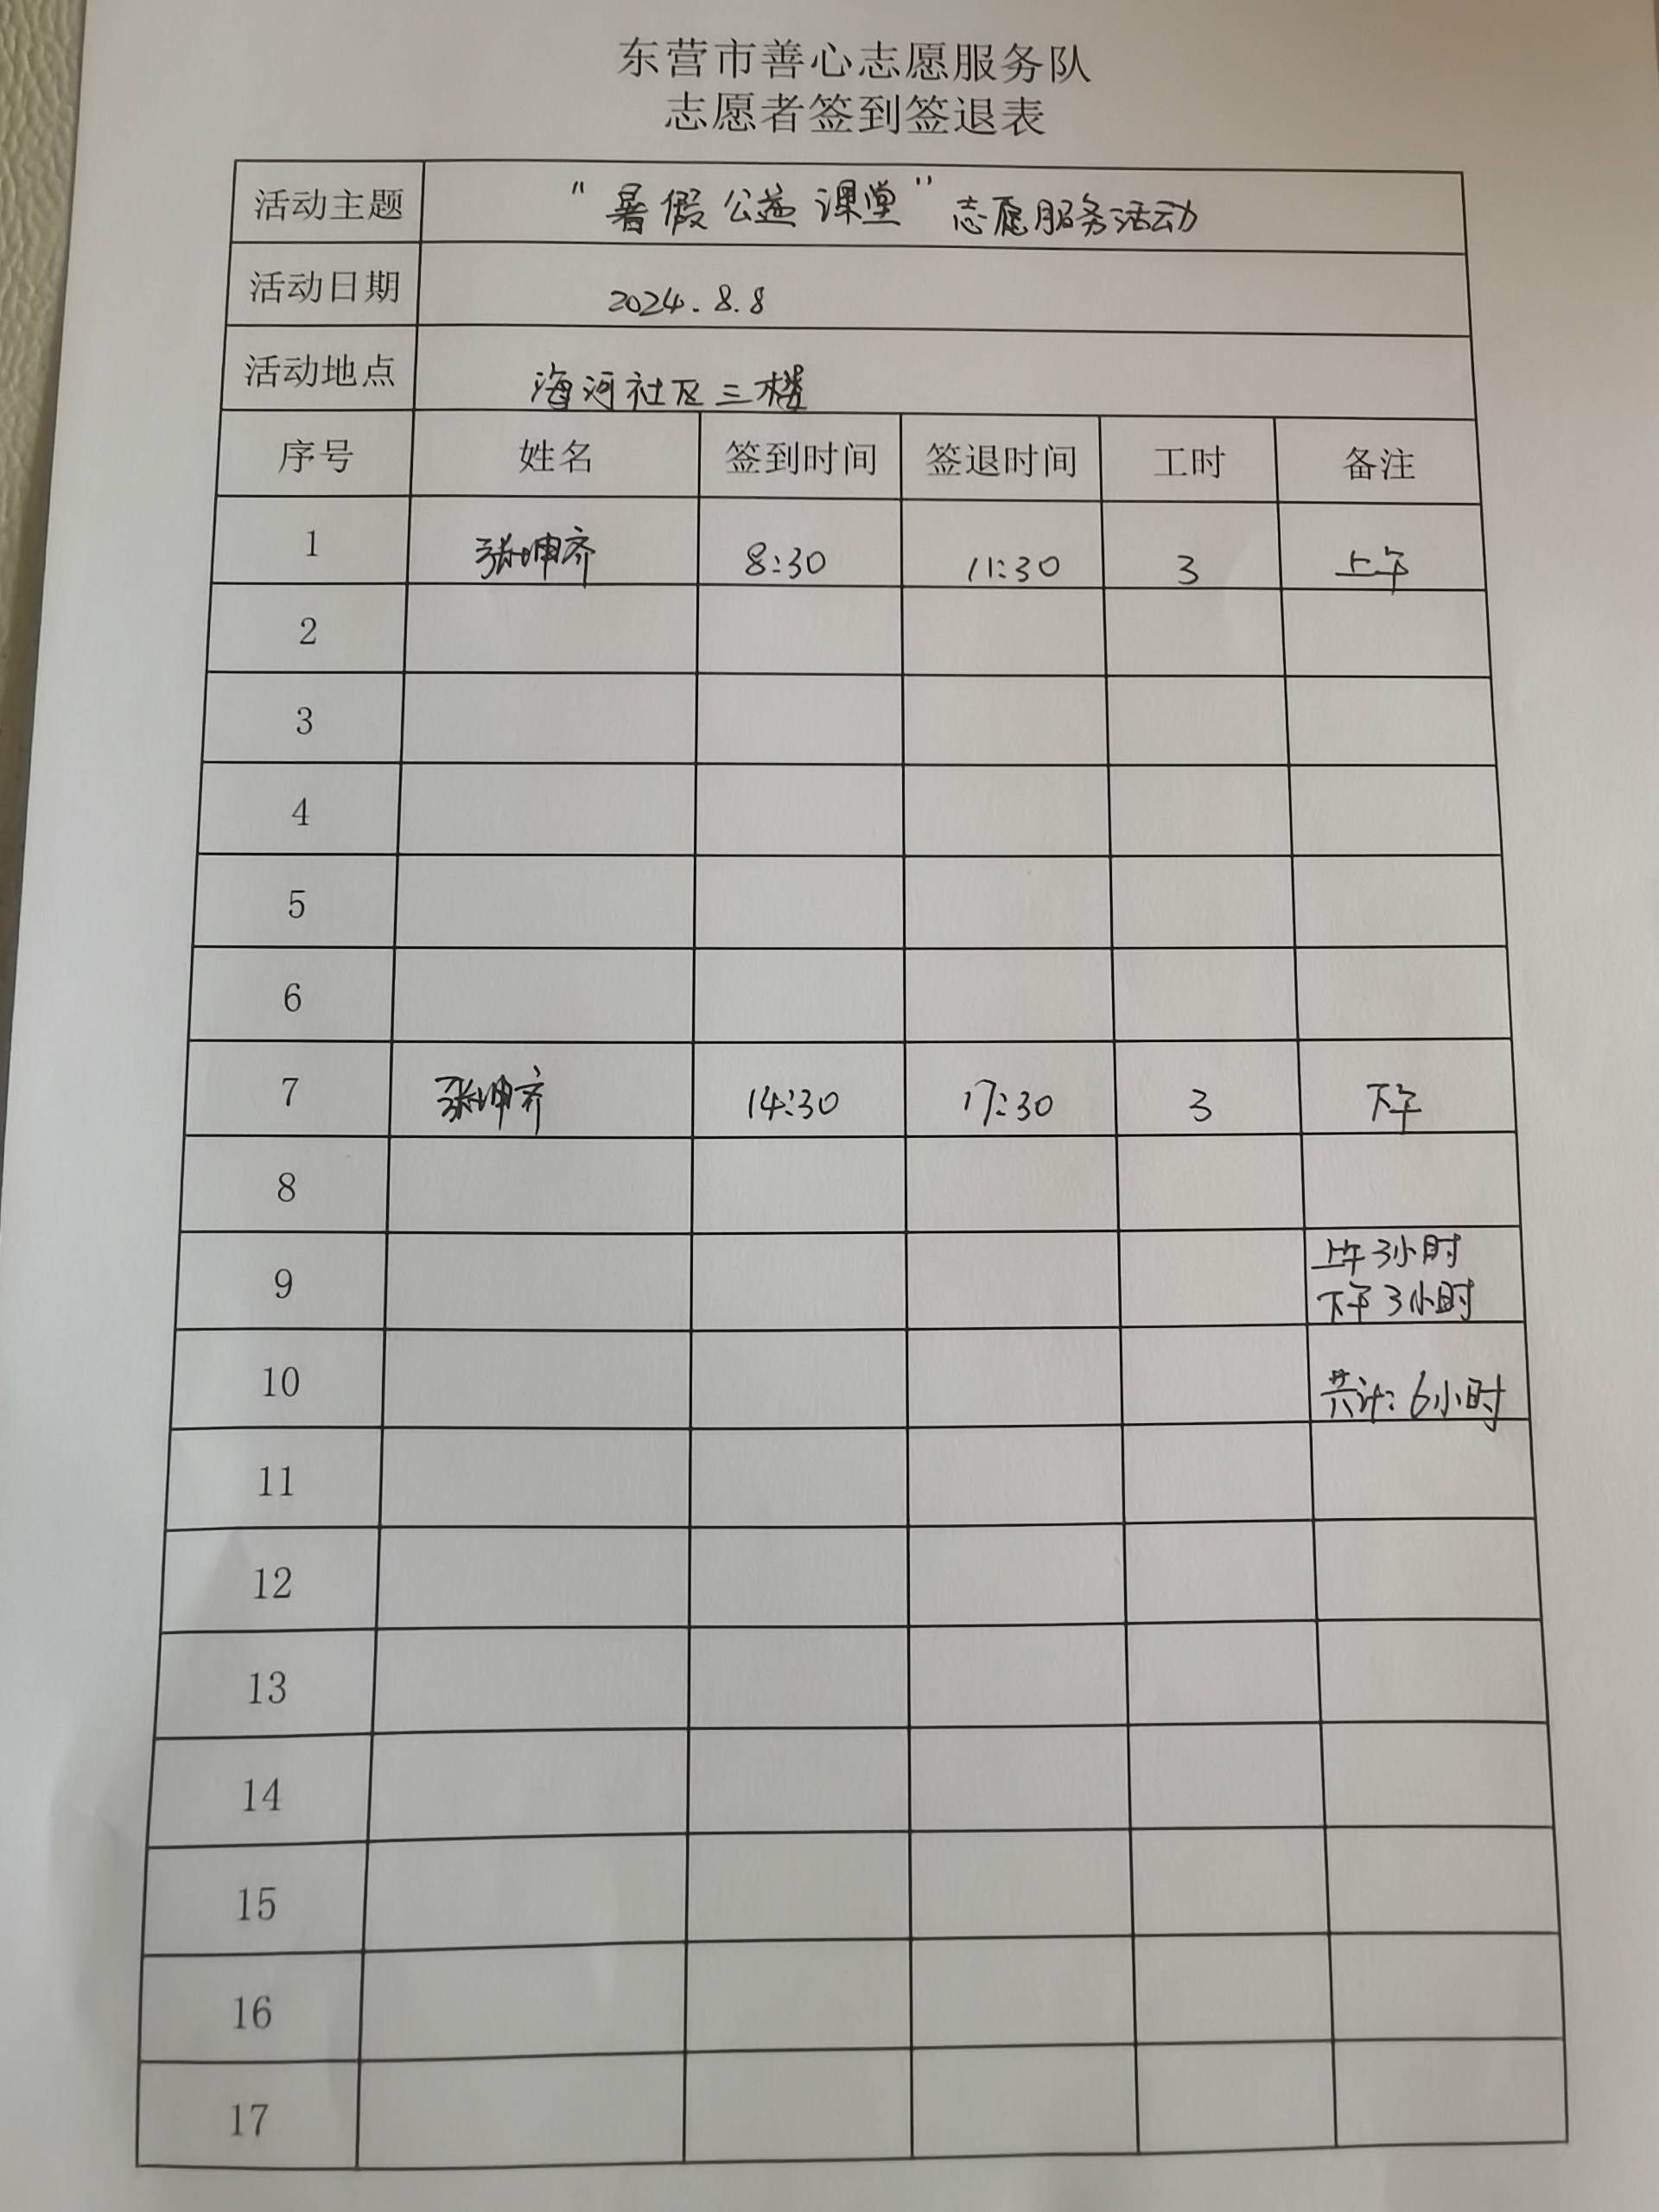 东营市善心志愿服务队
志愿者签到签退表
活动主题 "暑假公益课堂"志愿服务活动
活动日期 2024.8.8
活动地点 海河社区三楼
序号 姓名 签到时间 签退时间 工时 备注
1 张坤齐 8:30 11:30 3 上午
2
3
4
5
6
7 张坤齐 14:30 17:30 3 下午
8
9 上午3小时
下午3小时
10 共计:6小时
11
12
13
14
15
16
17